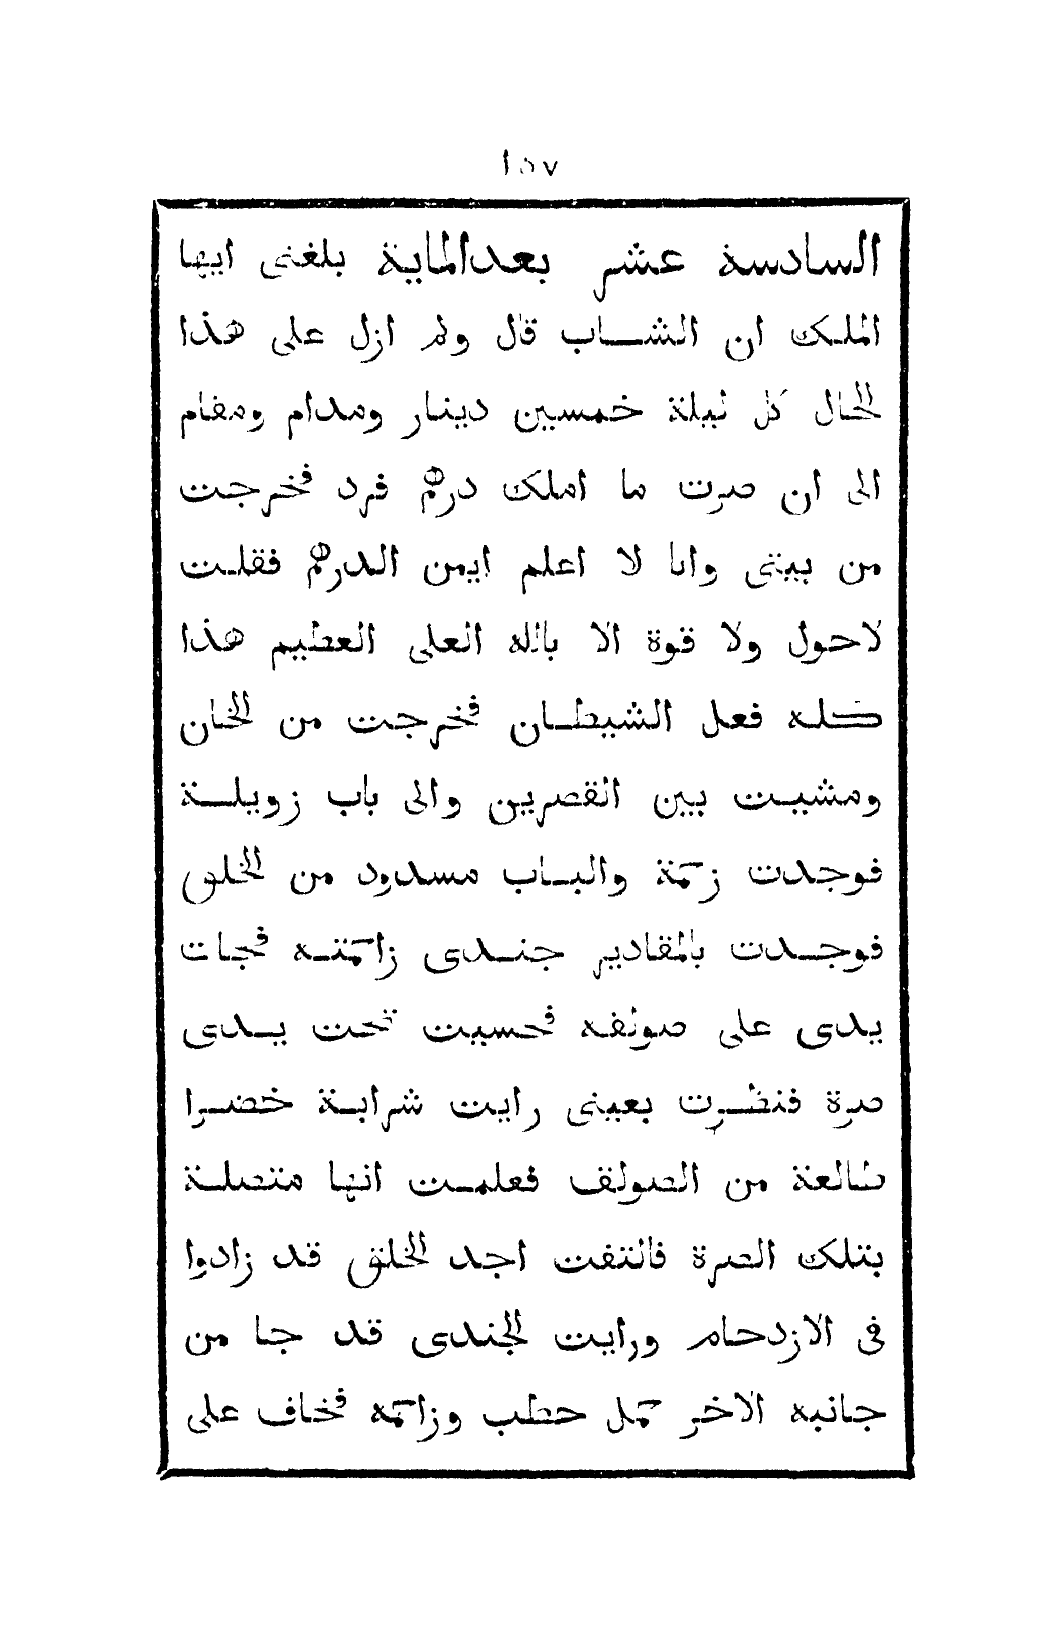 ١٥٧
السادسة عشر بعدالماية بلغنى ايها
الملك ان الشاب قال ولم ازل على هذا
الحال كل ليلة خمسين دينار ومدام ومقام
الى ان صرت ما املك درهم فرد فخرجت
من بيتى وانا لا اعلم ايمن الدرهم فقلت
لاحول ولا قوة الا بالله العلى العظيم هذا
كله فعل الشيطان فخرجت من الخان
ومشيت بين القصرين والى باب زويلة
فوجدت زحمة والباب مسدود من الخلق
فوجدت بالمقادير جندى زاحمته فجات
يدى على صولقه فحسيت تحت يدى
صرة فنظرت بعينى رايت شرابة خضرا
طالعة من الصولق فعلمت انها متصلة
بتلك الصرة فالتفت اجد الخلق قد زادوا
فى الازدحام ورايت الجندى قد جا من
جانبه الاخر حمل حطب وزاحمه فخاف على